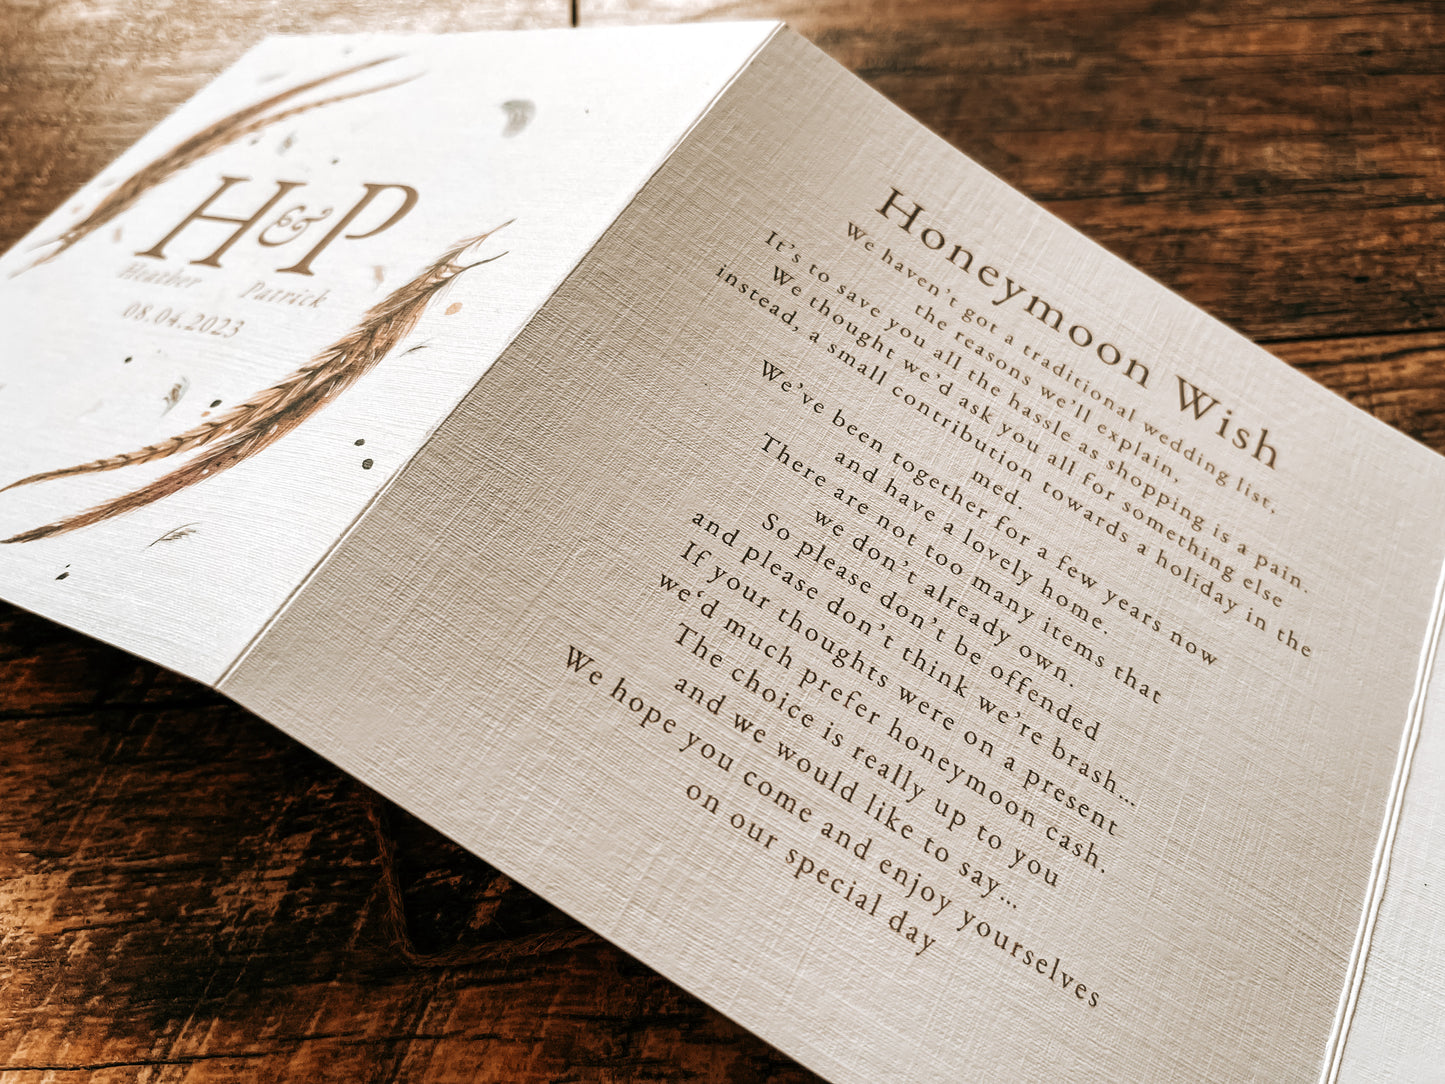 H&P
Heather Patrick
08.04.2023
Honeymoon Wish
We haven't got a traditional wedding list,
the reasons we'll explain,
It's to save you all the hassle as shopping is a pain.
We thought we'd ask you all for something else
instead, a small contribution towards a holiday in the
med.
We've been together for a few years now
and have a lovely home.
There are not too many items that
we don't already own.
So please don't be offended
and please don't think we're brash...
If your thoughts were on a present
we‘d much prefer honeymoon cash.
The choice is really up to you
and we would like to say...
We hope you come and enjoy yourselves
on our special day